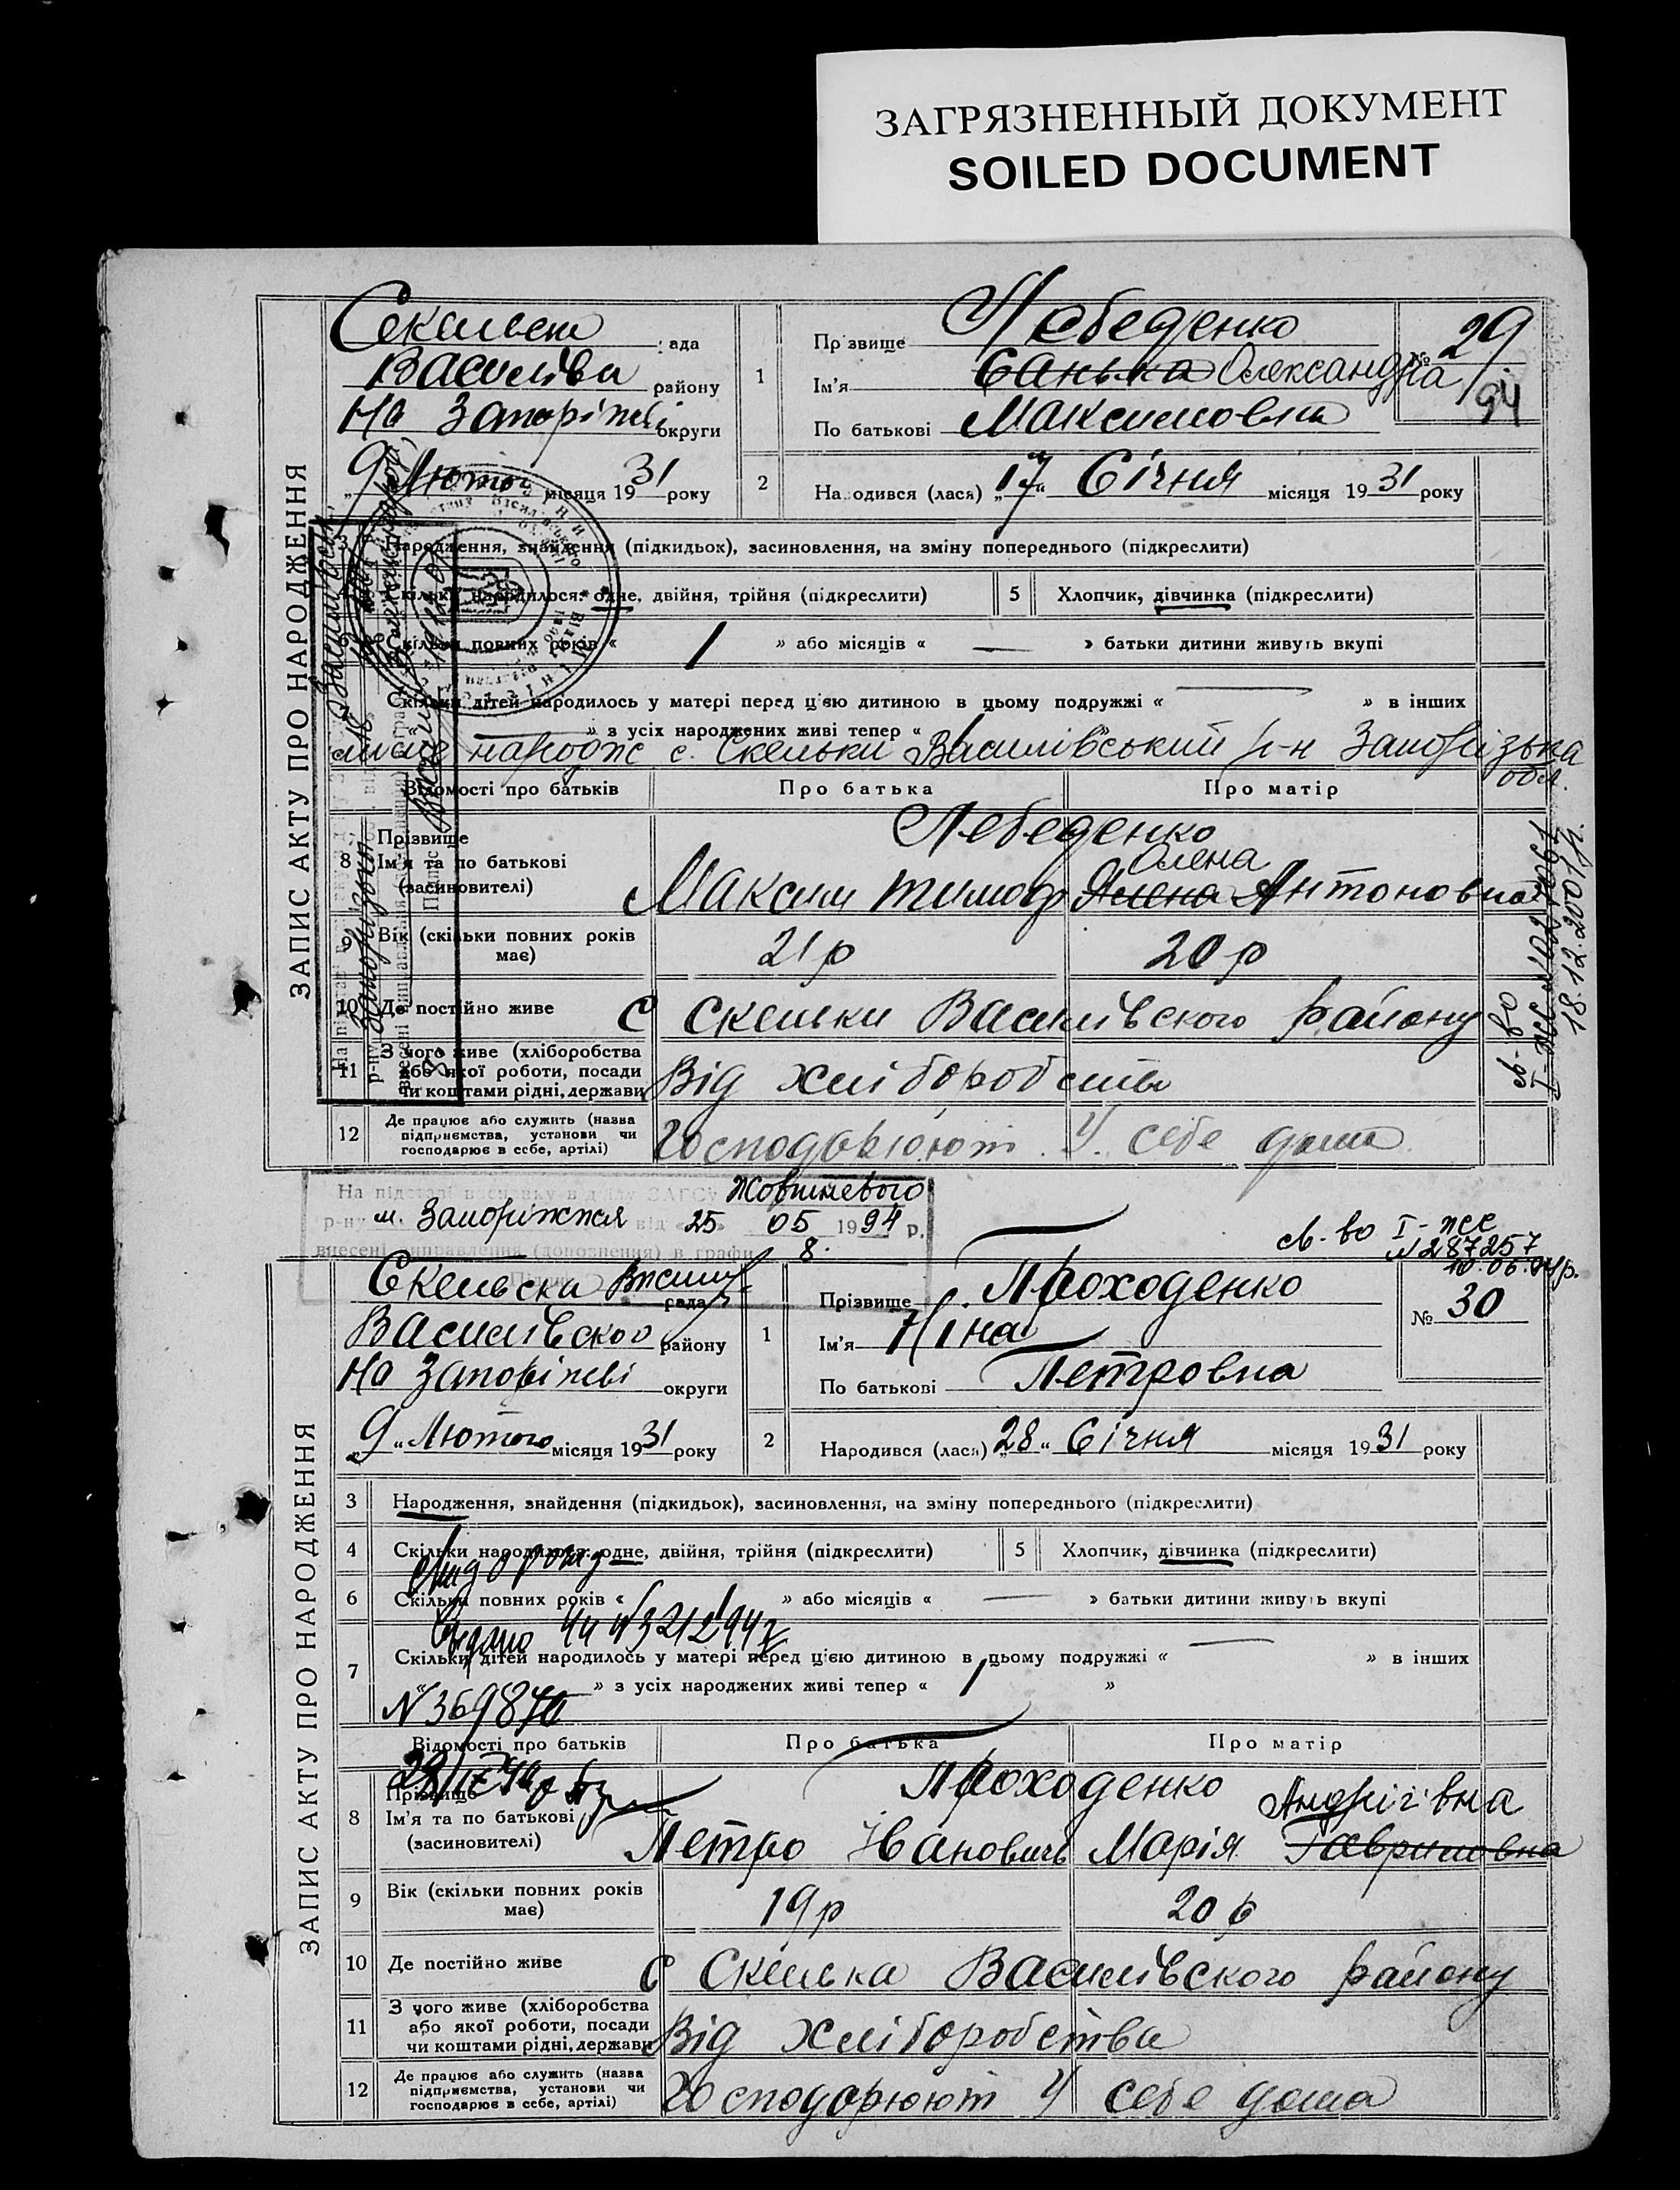 ЗАГРЯЗНЕННЫЙ ДОКУМЕНТ
SOILED DOCUMENT
ЗАПИС АКТУ ПРО НАРОДЖЕННЯ
рада
району
На Запоріжжі округи
9 Лютого місяця 1931 року
1
Прізвище Лебеденко
Ім'я Санька Олександра
По батькові Максимовна
№ 29
94
2
Народився (лася) „17“ Січня місяця 1931 року
3 Народження, знайдення (підкидьок), засиновлення, на зміну попереднього (підкреслити)
Скільки народилося: одне, двійня, трійня (підкреслити)
5 Хлопчик, дівчинка (підкреслити)
Скільки повних років « 1 » або місяців « — » батьки дитини живуть вкупі
Скільки дітей народилось у матері перед цією дитиною в цьому подружжі « — » в інших
« — » з усіх народжених живі тепер «
місце народж с. Скельки Василівський р-н Запорізька обл.
Відомості про батьків Про батька Про матір
8 Прізвище
Ім'я та по батькові
(засиновителі)
Лебеденко
Олена
Максим Тимоф Антоновна
9 Вік (скільки повних років має) 21 р 20 р
10 Де постійно живе с Скельки Василівского району
11 З чого живе (хліборобства або якої роботи, посади чи коштами рідні, держави Від хліборобства
12 Де працює або служить (назва підприємства, установи чи господарює в себе, артілі) Господарюют У себе дома
св-во
18.12.2001р.
На підставі висновку відділу ЗАГСу Жовтневого
р-ну м. Запоріжжя від «25» 05 1994 р.
внесені виправлення (доповнення) в графи 8.
св-во І-ЖС
№ 287257
10.06.94р.
ЗАПИС АКТУ ПРО НАРОДЖЕННЯ
Скельска рада
Василівского району
На Запоріжжі округи
„9“ Лютого місяця 1931 року
1
Прізвище Проходенко
Ім'я Ніна
По батькові Петровна
№ 30
2
Народився (лася) „28“ Січня місяця 1931 року
3 Народження, знайдення (підкидьок), засиновлення, на зміну попереднього (підкреслити)
4 Скільки народилося: одне, двійня, трійня (підкреслити)
5 Хлопчик, дівчинка (підкреслити)
6 Скільки повних років « 1 » або місяців « — » батьки дитини живуть вкупі
7 Скільки дітей народилось у матері перед цією дитиною в цьому подружжі « — » в інших
« » з усіх народжених живі тепер « 1 »
Відомості про батьків Про батька Про матір
8 Прізвище
Ім'я та по батькові
(засиновителі)
Проходенко
Андріївна
Петро Іванович Марія Гавриловна
9 Вік (скільки повних років має) 19 р 20 р
10 Де постійно живе с Скелька Василівского району
11 З чого живе (хліборобства або якої роботи, посади чи коштами рідні, держави Від хліборобства
12 Де працює або служить (назва підприємства, установи чи господарює в себе, артілі) Господорюют У себе дома